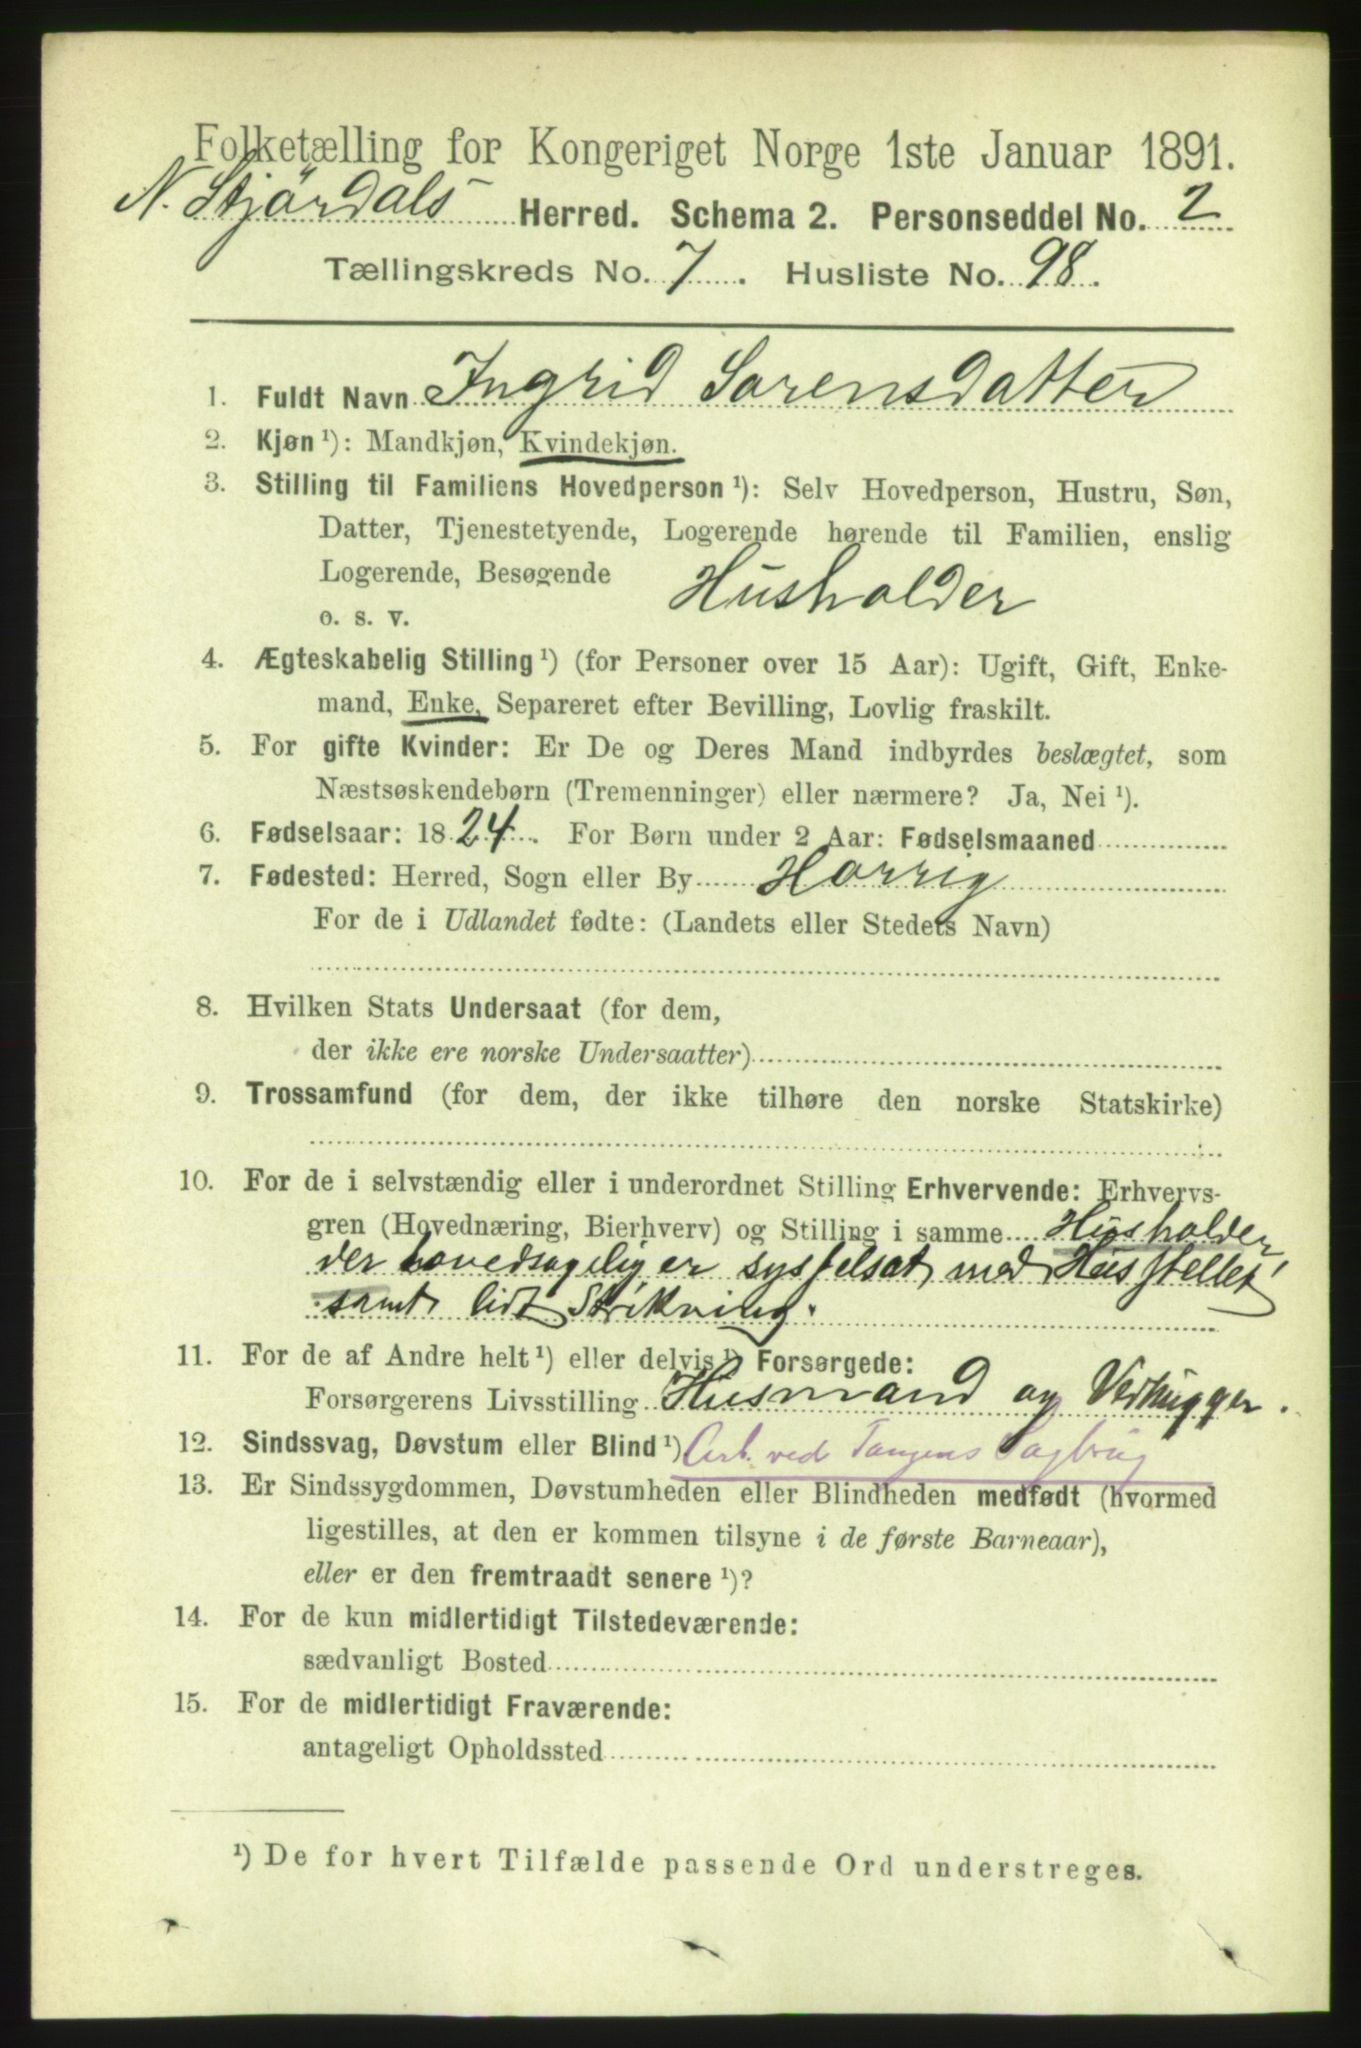 Folketælling for Kongeriget Norge 1ste Januar 1891.
N. Stjørdals Herred. Schema 2. Personseddel No. 2
Tællingskreds No. 7. Husliste No. 98.
1. Fuldt Navn Ingrid Sorensdatter
2. Kjøn ¹): Mandkjøn, Kvindekjøn.
3. Stilling til Familiens Hovedperson ¹): Selv Hovedperson, Hustru, Søn,
Datter, Tjenestetyende, Logerende hørende til Familien, enslig
Logerende, Besøgende
o. s. v. Husholder
4. Ægteskabelig Stilling ¹) (for Personer over 15 Aar): Ugift, Gift, Enke-
mand, Enke, Separeret efter Bevilling, Lovlig fraskilt.
5. For gifte Kvinder: Er De og Deres Mand indbyrdes beslægtet, som
Næstsøskendebørn (Tremenninger) eller nærmere? Ja, Nei ¹).
6. Fødselsaar: 1824. For Børn under 2 Aar: Fødselsmaaned
7. Fødested: Herred, Sogn eller By Horrig
For de i Udlandet fødte: (Landets eller Stedets Navn)
8. Hvilken Stats Undersaat (for dem,
der ikke ere norske Undersaatter)
9. Trossamfund (for dem, der ikke tilhøre den norske Statskirke)
10. For de i selvstændig eller i underordnet Stilling Erhvervende: Erhvervs-
gren (Hovednæring, Bierhverv) og Stilling i samme Husholder
der hovedsagelig er sysselsat med Husstellet
samt lidt Strikning.
11. For de af Andre helt ¹) eller delvis ¹) Forsørgede:
Forsørgerens Livsstilling Husmand og Vedhugger.
12. Sindssvag, Døvstum eller Blind ¹) Arb. ved Tangens Sagbrug
13. Er Sindssygdommen, Døvstumheden eller Blindheden medfødt (hvormed
ligestilles, at den er kommen tilsyne i de første Barneaar),
eller er den fremtraadt senere ¹)?
14. For de kun midlertidigt Tilstedeværende:
sædvanligt Bosted
15. For de midlertidigt Fraværende:
antageligt Opholdssted
¹) De for hvert Tilfælde passende Ord understreges.